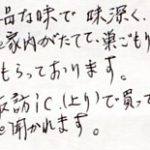 品な味で 味深く、
家内がたてて、巣ごもり
もらっております。
諏訪ic(上り)で買って
聞かれます。